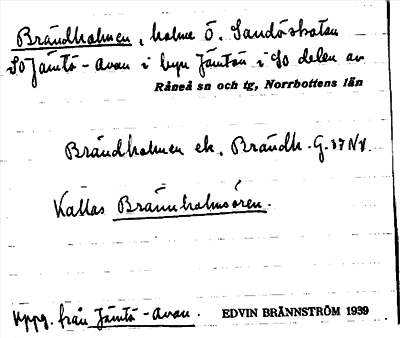 Brändholmen, holme Ö. Sandöskatan
SO Jämtö-avan i byn Jämtön i SO delen av
Råneå sn och tg, Norrbottens län
Brändholmen ek. Brändh. G.37NV.
Kallas Brännholmsören.
Uppg. från Jämtö-avan. EDVIN BRÄNNSTRÖM 1939